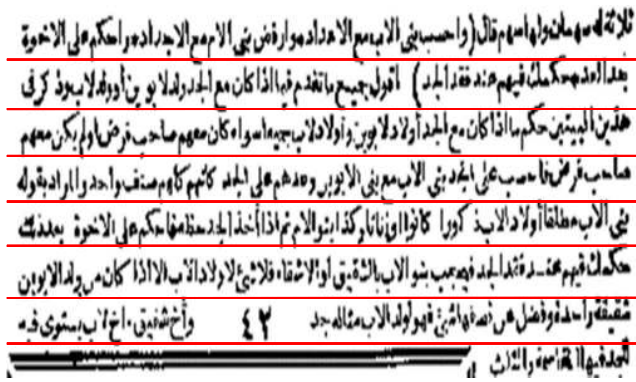 ثلاثة له سهمان ولها سهم قال (واحسب بني الاب مع الاعداد وارفض بني الام مع الاجداد واحكم على الاخوة
بعد العد حكمك فيهم عند فقد الجد) اقول جميع ما تقدم فيما اذا كان مع الجد ولد لابوين أو ولد لاب وذكر في
هذين البيتين حكم ما اذا كان مع الجد أولاد لابوين وأولاد لاب جميعا سواء كان معهم صاحب فرض أو لم يكن معهم
صاحب فرض فاحسب على الجد بني الاب مع بني الابوين وعدهم على الجد كانهم كلهم صنف واحد والمراد بقوله
بني الاب مطلقا أولاد الاب ذكورا كانوا او اناثا وكذا بنو الام ثم اذا أخذ الجد حظه فاحكم على الاخوة بعد ذلك
حكمك فيهم عند فقد الجد فيحجب بنو الاب بالشقيق أو الاشقاء فلا شئ لاولاد الاب الا اذا كان من ولد الابوين
شقيقة واحدة وفضل عن نصفها شئ فهو لولد الاب مثاله جد ٤٢ وأخ شقيق وأخ لاب يستوى فيه
للجد فيها المقاسمة والثلث